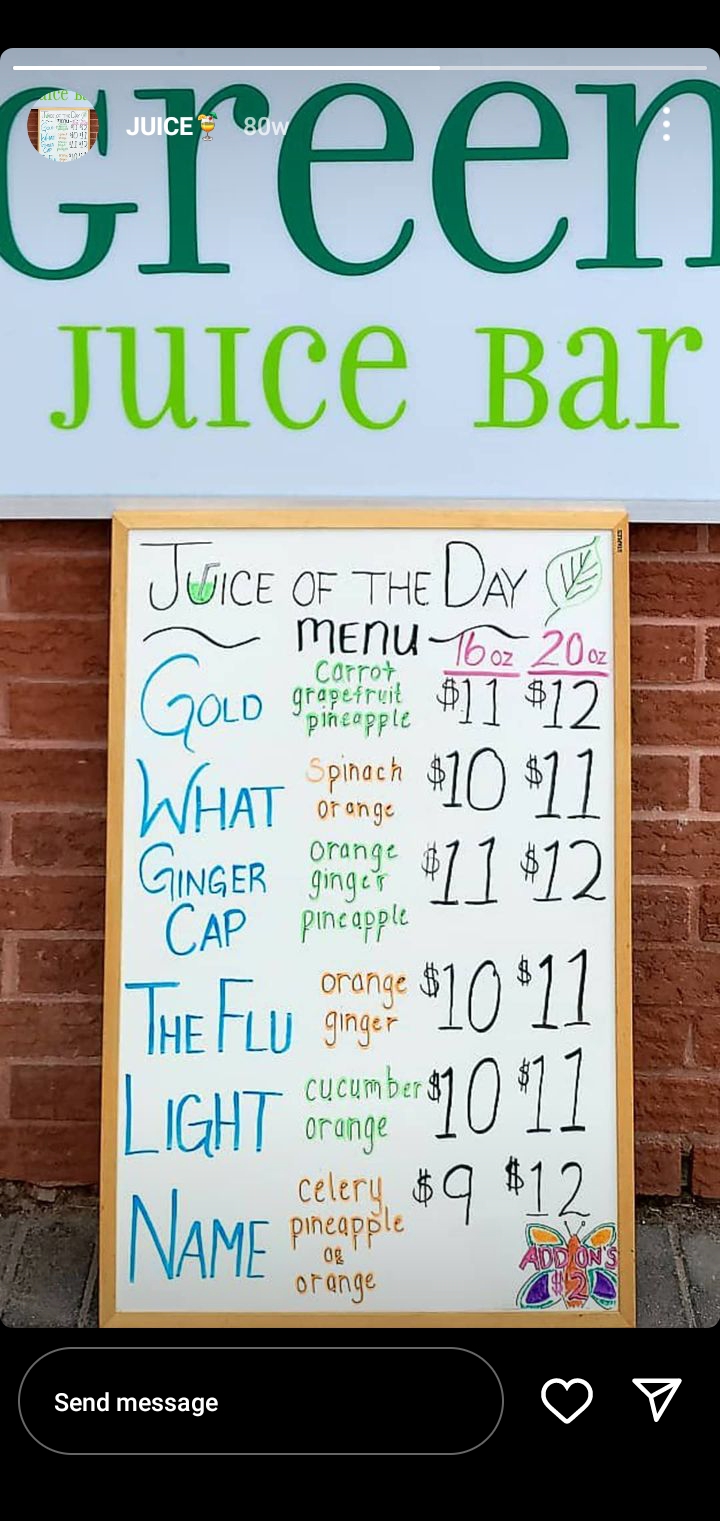 Green
JUICE🍹 80w
Juice Bar
STAPLES
JUICE OF THE DAY
MENU 16oz 20oz
GOLD carrot grapefruit pineapple $11 $12
WHAT Spinach orange $10 $11
GINGER CAP orange ginger pineapple $11 $12
THE FLU orange ginger $10 $11
LIGHT cucumber orange $10 $11
NAME celery pineapple or orange $9 $12
ADD ON'S
$2
Send message